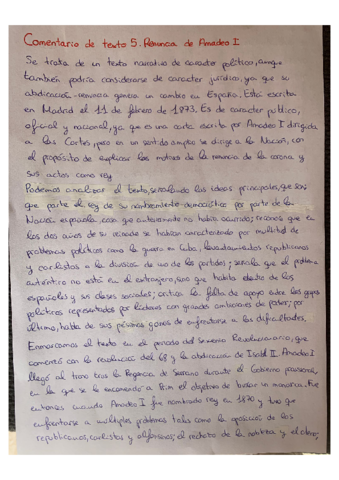 Comentario de texto 5. Renuncia de Amadeo I
Se trata de un texto narrativo de caracter político, aunque
también podría considerarse de caracter jurídico, ya que su
abdicación-renuncia genera un cambio en España. Está escrita
en Madrid el 11 de febrero de 1873. Es de caracter publico,
oficial y nacional, ya que es una carta escrita por Amadeo I dirigida
a las Cortes, pero en un sentido amplio se dirige a la Nación, con
el propósito de explicar los motivos de la renuncia de la corona y
sus actos como rey
Podemos analizar el texto, señalando las ideas principales, que son:
que parte el rey de su nombramiento democrático por parte de la
Nación española, cosa que anteriormente no había ocurrido; razones que en
los dos años de su reinado se habían caracterizado por multitud de
problemas políticos como la guerra en Cuba, levantamientos republicanos
y carlistas o la división de uno de los partidos; señala que el problema
auténtico no está en el extranjero, sino que habita dentro de los
españoles y sus clases sociales; critica la falta de apoyo entre los grupos
políticos representados por líderes con grandes ambiciones de poder; por
último, habla de sus pésimas ganas de enfrentarse a las dificultades.
Enmarcamos el texto en el periodo del Sexenio Revolucionario, que
comenzó con la revolución del 68 y la abdicación de Isabel II. Amadeo I
llegó al trono tras la Regencia de Serrano durante el Gobierno provisional,
en la que se le encomendó a Prim el objetivo de buscar un monarca. Fue
entonces cuando Amadeo I fue nombrado rey en 1870 y tuvo que
enfrentarse a múltiples problemas tales como la oposición de los
republicanos, carlistas y alfonsinos; el rechazo de la nobleza y el clero;